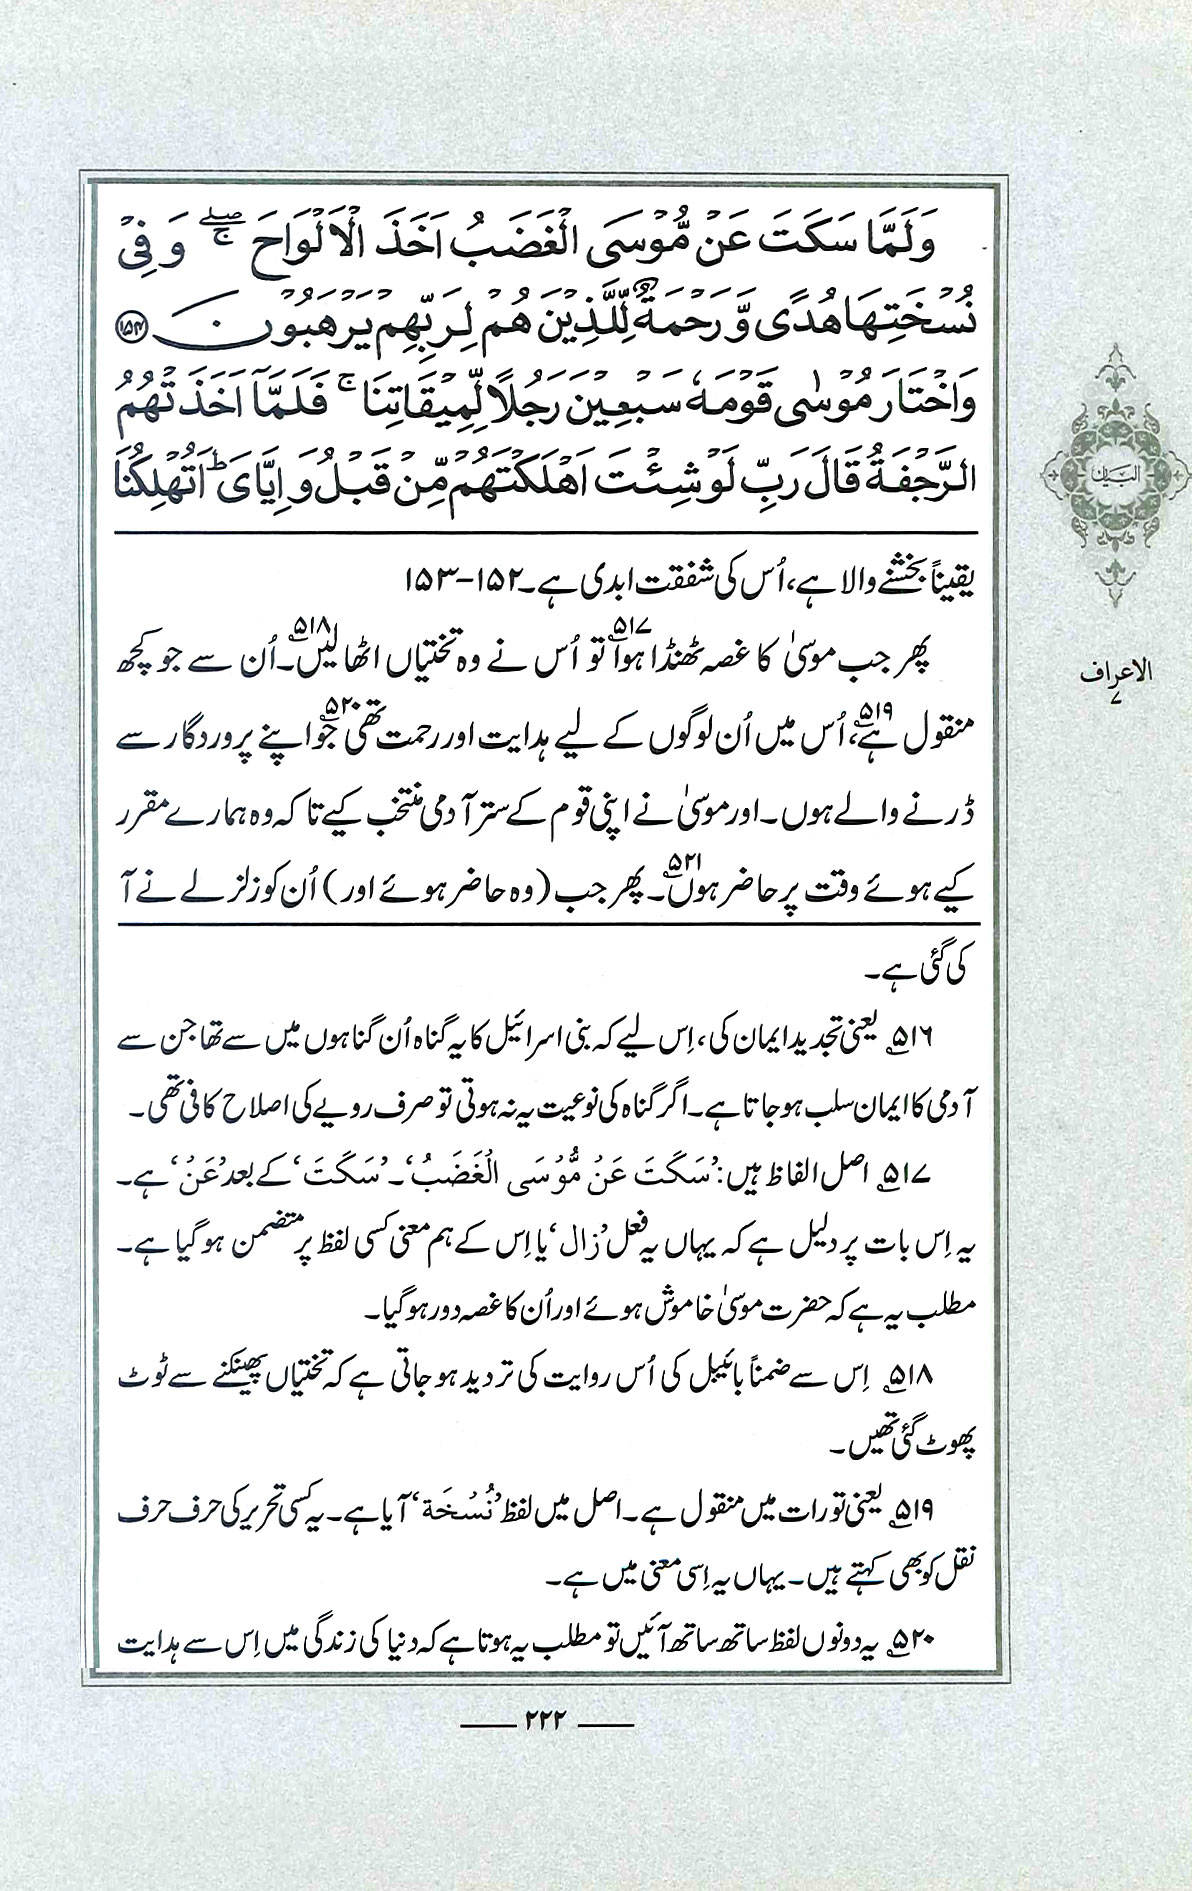 وَلَمَّا سَكَتَ عَنْ مُّوْسَى الْغَضَبُ اَخَذَ الْاَلْوَاحَ ۖۚ وَ فِیْ
نُسْخَتِهَا هُدًى وَّ رَحْمَةٌ لِّلَّذِیْنَ هُمْ لِرَبِّهِمْ یَرْهَبُوْنَ ﴿۱۵۴﴾
وَاخْتَارَ مُوْسٰی قَوْمَهٗ سَبْعِیْنَ رَجُلًا لِّمِیْقَاتِنَا ۚ فَلَمَّاۤ اَخَذَتْهُمُ
الرَّجْفَةُ قَالَ رَبِّ لَوْ شِئْتَ اَهْلَكْتَهُمْ مِّنْ قَبْلُ وَ اِیَّایَ ؕ اَتُهْلِكُنَا
یقیناً بخشنے والا ہے، اُس کی شفقت ابدی ہے۔ ۱۵۲-۱۵۳
پھر جب موسیٰ کا غصہ ٹھنڈا ہوا ۵۱۷ تو اُس نے وہ تختیاں اٹھا لیں ۵۱۸۔ اُن سے جو کچھ
منقول ہے ۵۱۹، اُس میں اُن لوگوں کے لیے ہدایت اور رحمت تھی ۵۲۰ جو اپنے پروردگار سے
ڈرنے والے ہوں۔ اور موسیٰ نے اپنی قوم کے ستر آدمی منتخب کیے تاکہ وہ ہمارے مقرر
کیے ہوئے وقت پر حاضر ہوں ۵۲۱۔ پھر جب (وہ حاضر ہوئے اور) اُن کو زلزلے نے آ
کی گئی ہے۔
۵۱۶ یعنی تجدید ایمان کی، اِس لیے کہ بنی اسرائیل کا یہ گناہ اُن گناہوں میں سے تھا جن سے
آدمی کا ایمان سلب ہو جاتا ہے۔ اگر گناہ کی نوعیت یہ نہ ہوتی تو صرف رویے کی اصلاح کافی تھی۔
۵۱۷ اصل الفاظ ہیں: ’سَكَتَ عَنْ مُّوْسَى الْغَضَبُ‘۔ ’سَكَتَ‘ کے بعد ’عَنْ‘ ہے۔
یہ اِس بات پر دلیل ہے کہ یہاں یہ فعل ’زال‘ یا اِس کے ہم معنی کسی لفظ پر متضمن ہو گیا ہے۔
مطلب یہ ہے کہ حضرت موسیٰ خاموش ہوئے اور اُن کا غصہ دور ہو گیا۔
۵۱۸ اِس سے ضمناً بائیبل کی اُس روایت کی تردید ہو جاتی ہے کہ تختیاں پھینکنے سے ٹوٹ
پھوٹ گئی تھیں۔
۵۱۹ یعنی تورات میں منقول ہے۔ اصل میں لفظ ’نُسْخَة‘ آیا ہے۔ یہ کسی تحریر کی حرف حرف
نقل کو بھی کہتے ہیں۔ یہاں یہ اِسی معنی میں ہے۔
۵۲۰ یہ دونوں لفظ ساتھ ساتھ آئیں تو مطلب یہ ہوتا ہے کہ دنیا کی زندگی میں اِس سے ہدایت
۲۲۲
البیان
الاعراف
۷